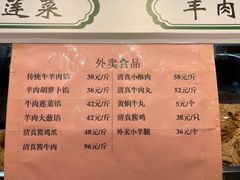 莲菜
羊肉
外卖食品
传统牛羊肉馅 38元/斤 清真小酥肉 58元/斤
羊肉胡萝卜馅 38元/斤 清真牛肉丸 52元/斤
牛肉莲菜馅 42元/斤 黄焖牛丸 5元/个
羊肉大葱馅 42元/斤 清真酱鸡 38元/只
清真酱鸡爪 48元/斤 外卖小羊腿 36元/个
清真酱牛肉 96元/斤